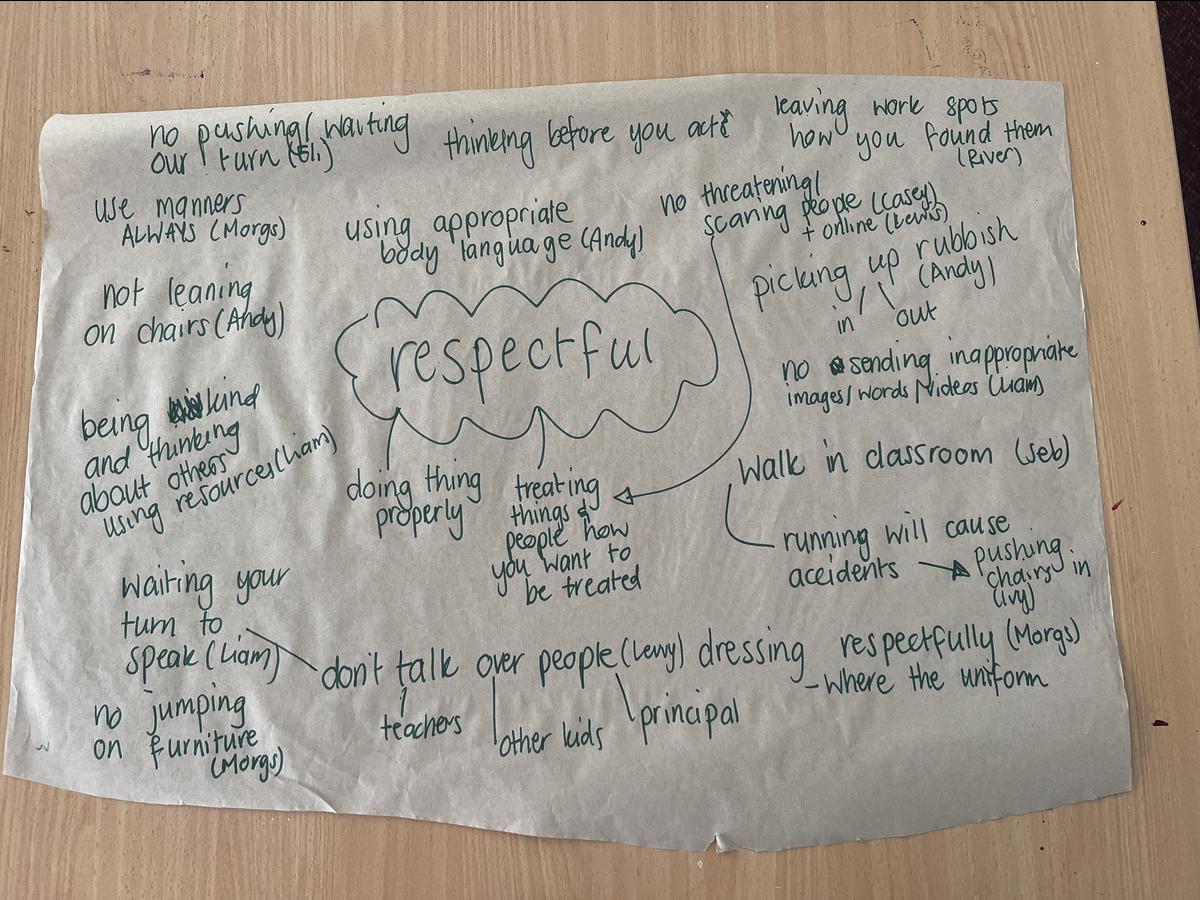 no pushing/ waiting
our turn (Eli)
thinking before you act
leaving work spots
how you found them
(River)
use manners
ALWAYS (Morgs)
using appropriate
body language (Andy)
no threatening/
scaring people (Casey)
+ online (Lewis)
not leaning
on chairs (Andy)
picking up rubbish
(Andy)
in out
respectful
no sending inappropriate
images/words/videos (Liam)
being kind
and thinking
about others
using resources (Liam)
doing thing
properly
treating
things &
people how
you want to
be treated
Walk in classroom (Seb)
running will cause
accidents
pushing
chairs in
(Ivy)
waiting your
turn to
speak (Liam)
don't talk over people
teachers
other kids
principal
dressing respectfully (Morgs)
- where the uniform
no jumping
on furniture
(Morgs)